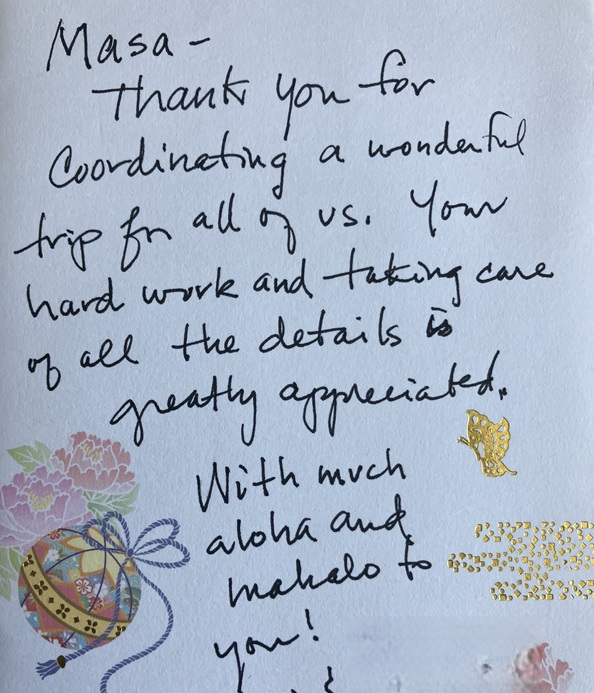 Masa -
Thank you for
Coordinating a wonderful
trip for all of us. Your
hard work and taking care
of all the details is
greatly appreciated.
With much
aloha and
mahalo to
you!